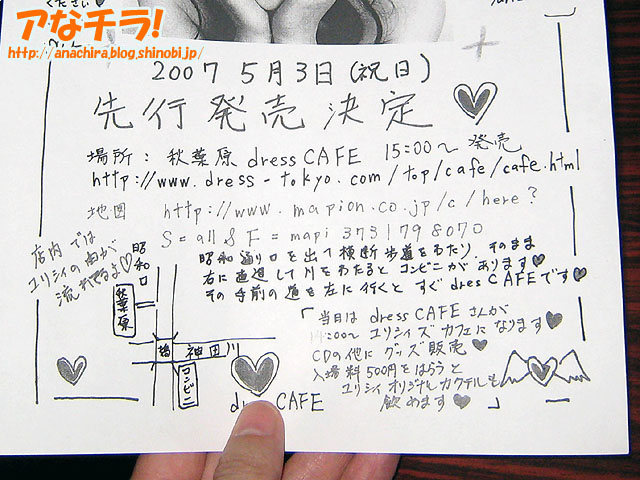 ください♥
アなチラ!
http://anachira.blog.shinobi.jp/
2007 5月3日(祝日)
先行発売決定
場所: 秋葉原 dress CAFE 15:00〜 発売
http://www.dress-tokyo.com/top/cafe/cafe.html
地図 http://www.mapion.co.jp/c/here?
S=all&F=mapi3731798070
店内では
ユリシィの曲が
流れてるよ♡
昭和通り口を出て横断歩道をわたり、そのまま
右に直進して川をわたるとコンビニがあります♥
その手前の道を左に行くとすぐdresCAFEです♥
昭和口
秋葉原
橋
神田川
コンビニ
dress CAFE
「当日は dress CAFEさんが
:00〜 ユリシィズカフェになります♥
CDの他にグッズ販売♥
入場料500円をはらうと
ユリシィオリジナルカクテルも
飲めます♥」